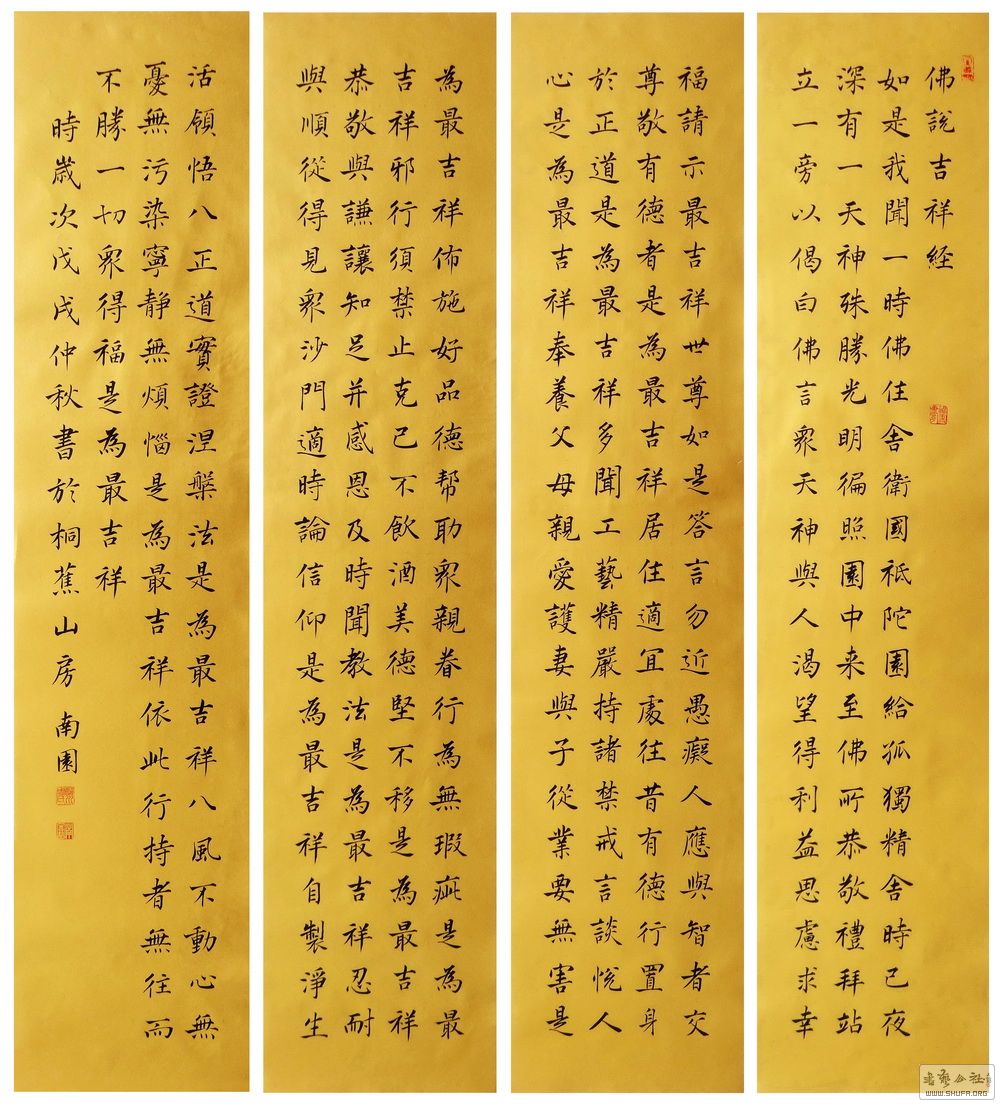 佛說吉祥经
如是我聞一時佛住舍衛國祇陀園給孤獨精舍時已夜
深有一天神殊勝光明徧照園中来至佛所恭敬禮拜站
立一旁以偈白佛言眾天神與人渴望得利益思慮求幸
福請示最吉祥世尊如是答言勿近愚癡人應與智者交
尊敬有德者是為最吉祥居住適宜處往昔有德行置身
於正道是為最吉祥多聞工藝精嚴持諸禁戒言談悅人
心是為最吉祥奉養父母親愛護妻與子從業要無害是
為最吉祥佈施好品德帮助眾親眷行為無瑕疵是為最
吉祥邪行須禁止克己不飲酒美德堅不移是為最吉祥
恭敬與謙讓知足并感恩及時聞教法是為最吉祥忍耐
與順從得見眾沙門適時論信仰是為最吉祥自製淨生
活領悟八正道實證涅槃法是為最吉祥八風不動心無
憂無污染寧静無煩惱是為最吉祥依此行持者無往而
不勝一切眾得福是為最吉祥
時歲次戊戌仲秋書於桐蕉山房南園
書藝公社
WWW.SHUFA.ORG